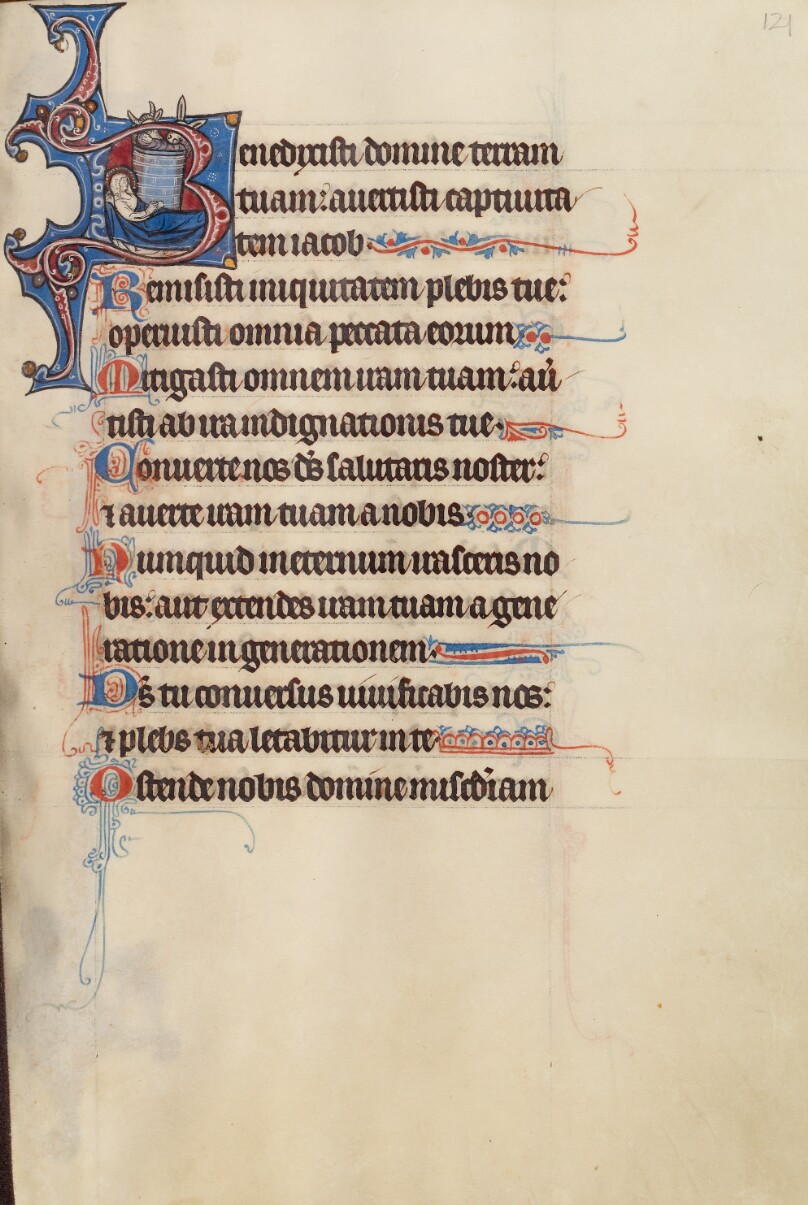 121
Benedixisti domine terram
tuam: auertisti captiuita
tem iacob.
Remisisti iniquitatem plebis tue:
operuisti omnia peccata eorum
Mitigasti omnem iram tuam: au̾
tisti ab ira indignationis tue.
Conuerte nos d̅s salutaris noster:
⁊ auerte iram tuam a nobis.
Numquid in eternum irasceris no
bis: aut extendes iram tuam a gene
ratione in generationem.
D̅s tu conuersus uiuificabis nos:
⁊ plebs tua letabitur in te.
Ostende nobis domine misc̅diam